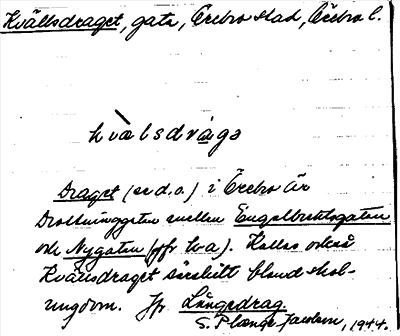 Kvällsdraget, gata, Örebro stad, Örebro l.
kvälsdràga
Draget (se d.o.) i Örebro är
Drottninggatan mellan Engelbrektsgatan
och Nygatan (jfr kva). Kallas också
Kvällsdraget särskilt bland skol-
ungdom. Jfr Långedrag.
S. Plænge Jacobson, 1944.